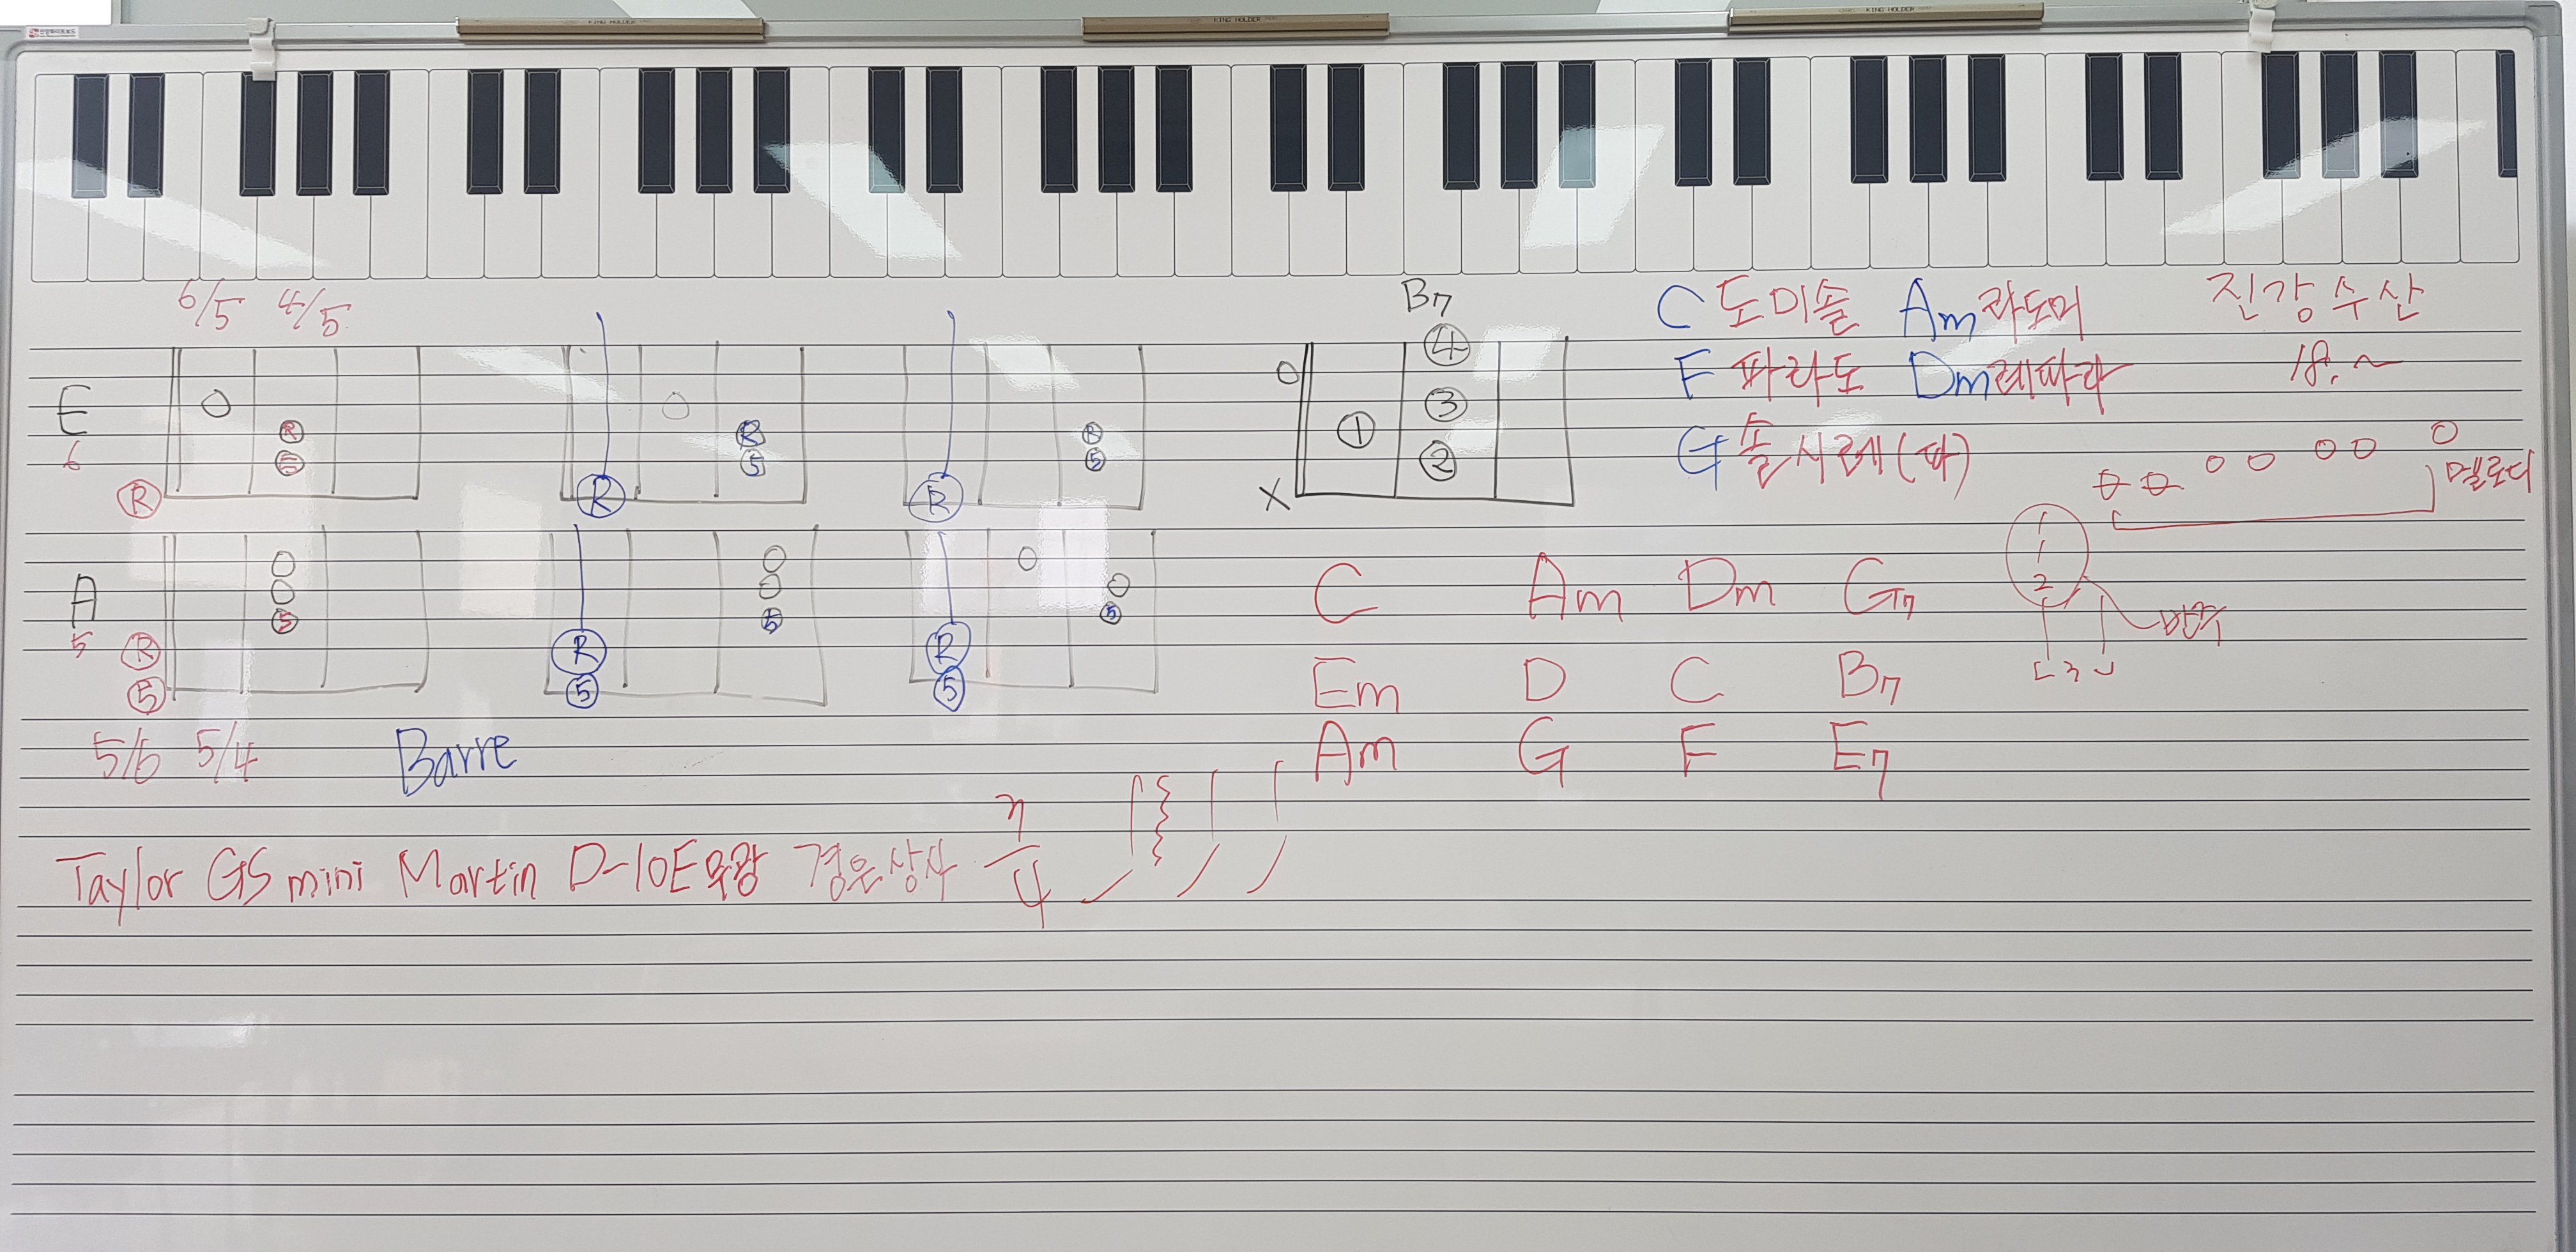 KING HOLDER KING HOLDER KING HOLDER
6/5 4/5
B7
C 도미솔 Am 라도미
진강수산
F 파라도 Dm 레파라
18. ~
G 솔시레(파)
멜로디
E
6
R
R
R
5
R
R
5
R
X
1
2
3
4
A
5
R
5
5
R
5
5
R
5
5
1
1
2
C Am Dm G7
Em D C B7
Am G F E7
5/6 5/4 Barre
Taylor GS mini Martin D-10E 무광 경은상사